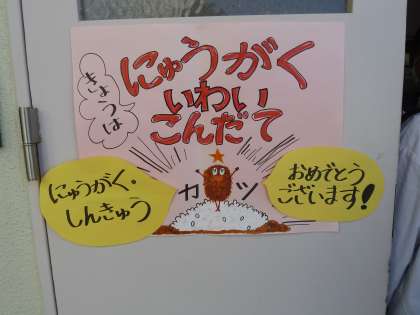 きょうは
にゅうがく
いわい
こんだて
にゅうがく・
しんきゅう
カツ
おめでとう
ございます!